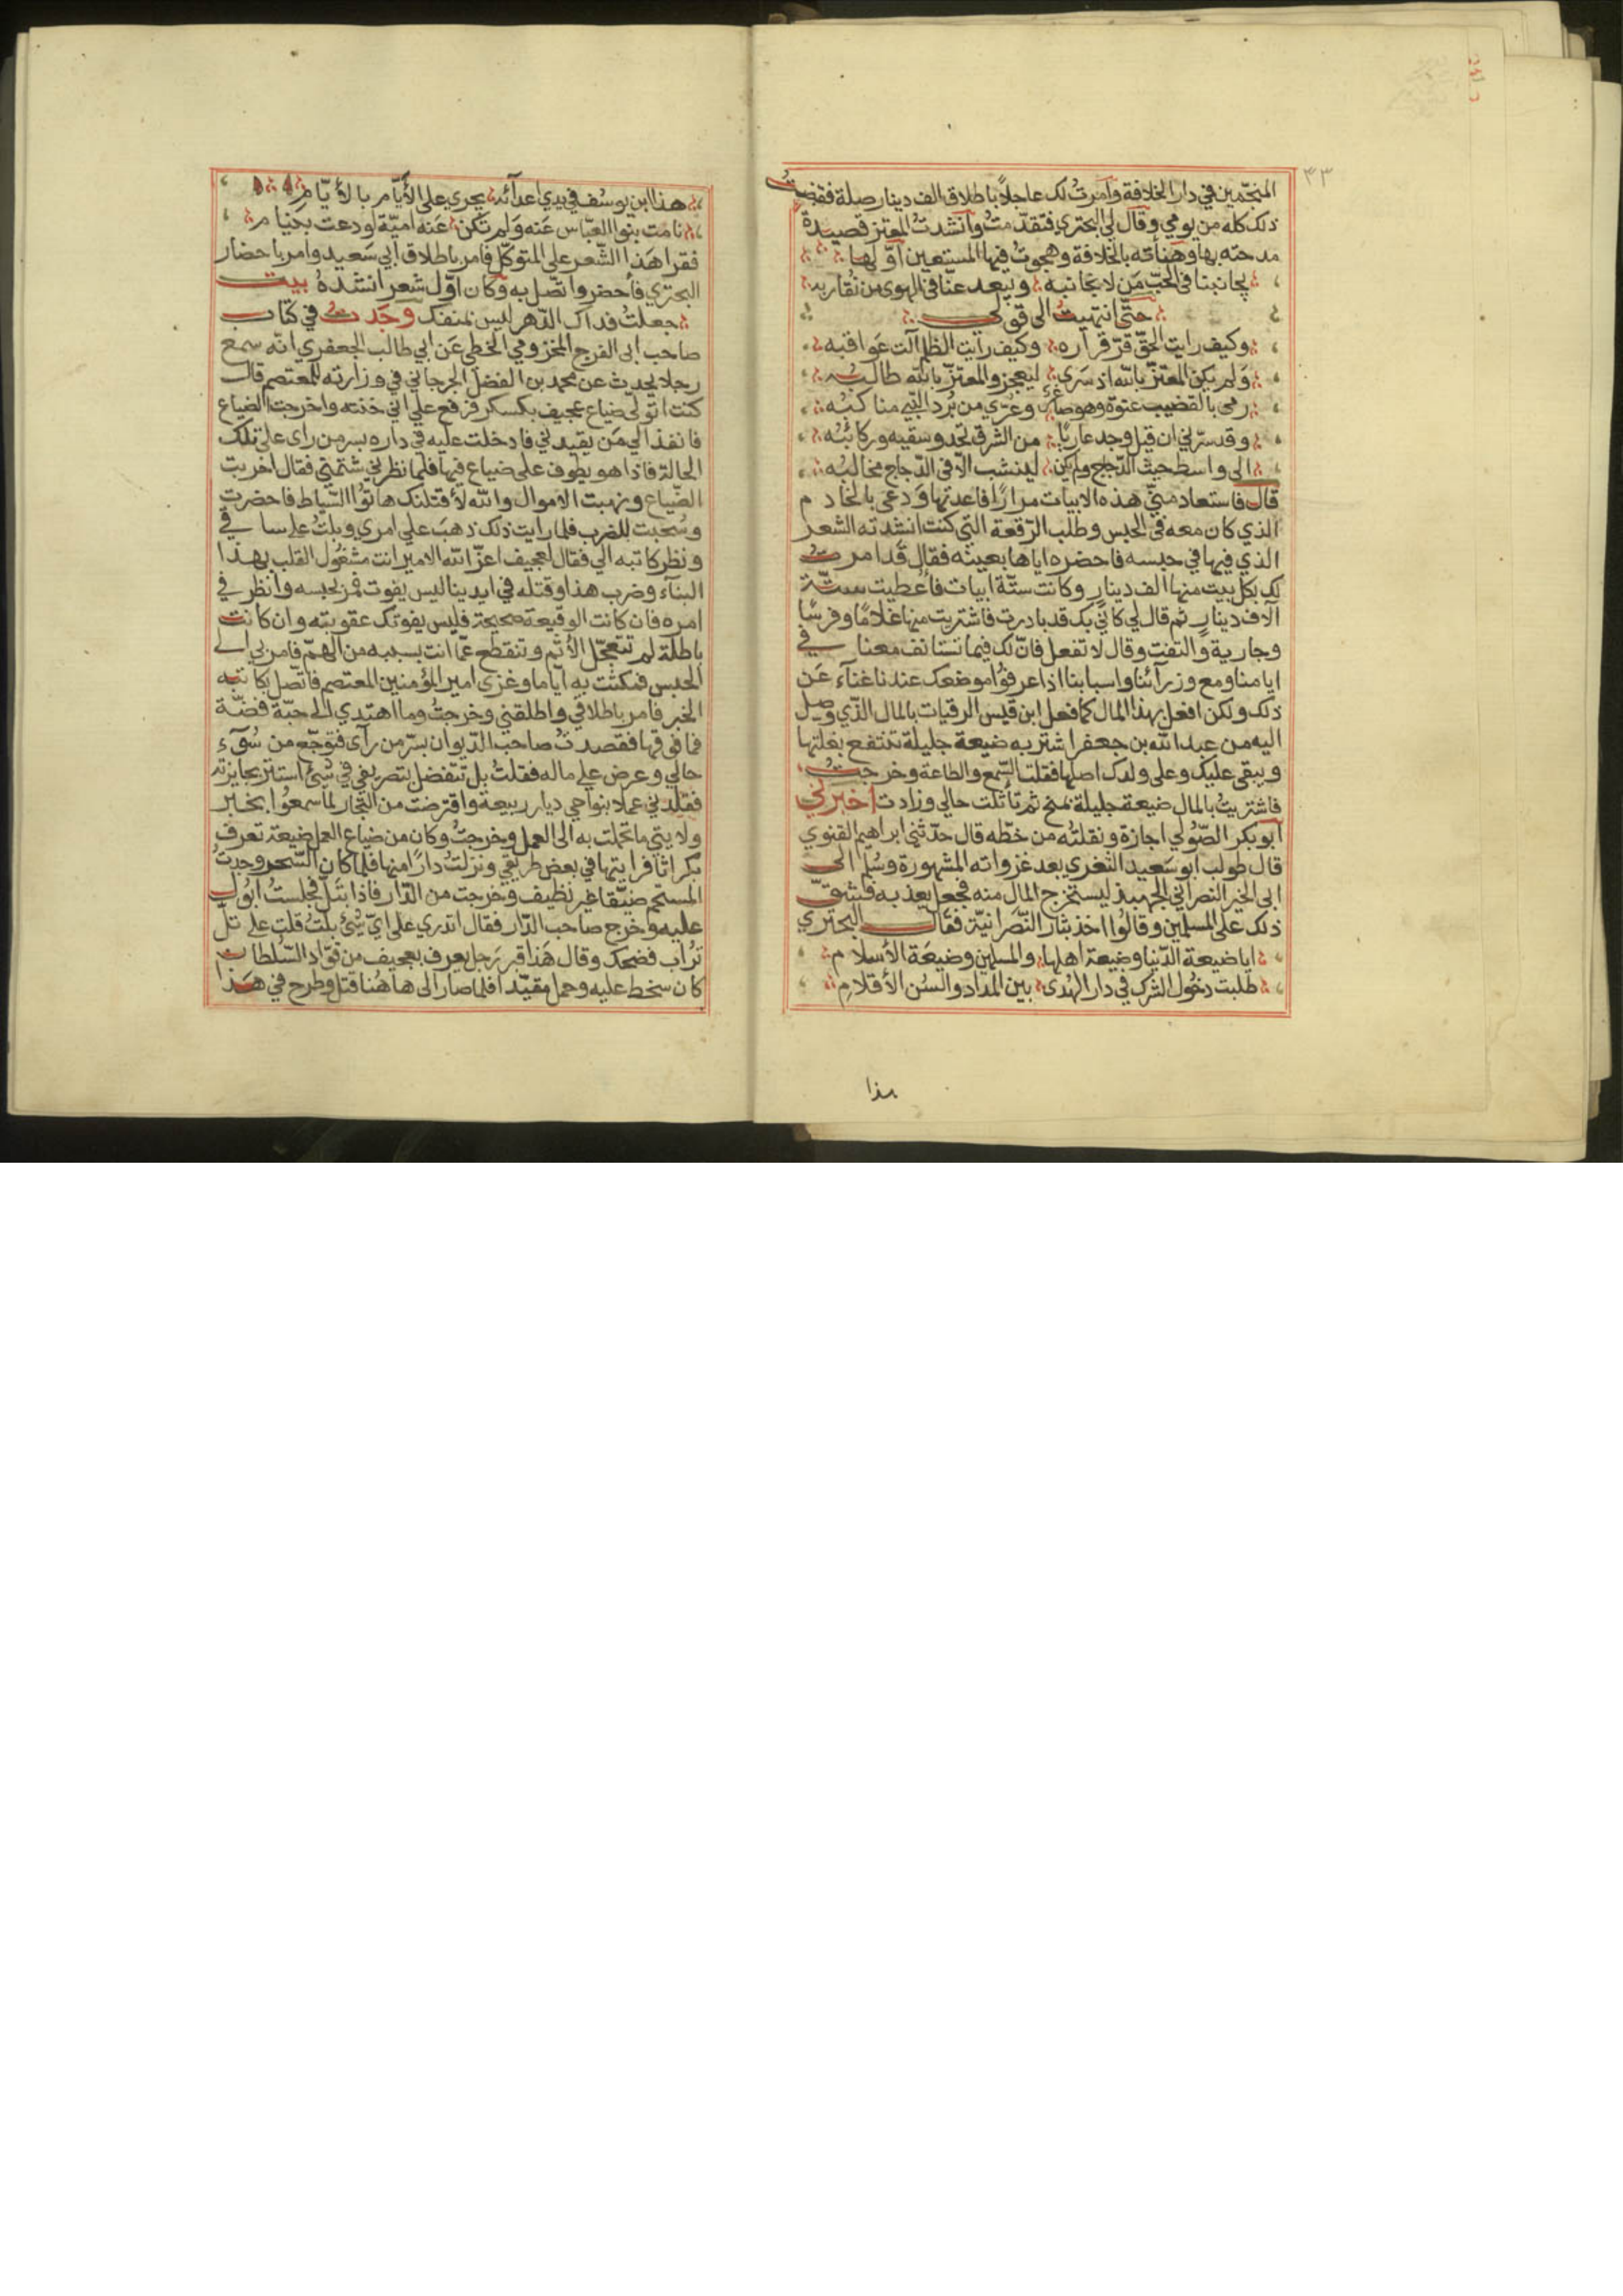 ٣٣
المنجّمين في دار الخلافة وآمرتُ لك عاجلاً باطلاق الف دينار صلة فقبضتُ
ذلك كله من يومي وقال لي البحتري فتقدّمتُ وآنشدتُ المعتز قصيدة
مدحته بها وهنأته بالخلافة وهجوتُ فيها المستعين آوّلها
يجانبنا في الحبّ مَن لا نجانبه ويبعد عنّا في الهوى من نُقاربه
حتّى انتهيتُ الى قولي
وكيف رايت الحقّ قرّ قراره وكيف رأيت الظلم آلت عَواقبه
وَلم يكن المعتزّ بالله اذ سَرى ليعجز والمعتزّ بالله طالبُه
رمى بالقضيب عنوة وهو صاغر وعُرّي من بُرد النّبي مناكبُه
وقد سرّني ان قيل وجد عاريًا من الشرق تحدو سفنه وركائبُه
الى واسط حيث الدّجاج ولم يكن لينشب الاّ في الدّجاج مخالبُه
قال فاستعاد منّي هذه الابيات مرارًا فاعدتها وَدعى بالخادم
الذي كان معه في الحبس وطلب الرّقعة التي كنت انشدته الشعر
الذي فيها في حبسه فاحضره اياها بعينه فقال قَد امرتُ
لك بكل بيت منها الف دينار وكانت ستّة ابيات فاُعطيت ستّة
آلاف دينار ثم قال لي كانّي بك قد بادرت فاشتريت منها غلامًا وفرسًا
وجارية والتفت وقال لا تفعل فانّ لك فيما تستانف معنا في
ايامنا ومع وزرآئنا واسبابنا اذا عرفوُا موضعك عندنا غنآء عَن
ذلك ولكن افعل بهذا المال كما فعل ابن قيس الرقيات بالمال الذّي وصل
اليه من عبد الله بن جعفر اشتر به ضيعة جليلة تنتفع بغلتها
ويبقى عليك وعلى ولدك اصلها فقلت السّمع والطاعة وخرجتُ
فاشتريتُ بالمال ضيعة جليلة بمنبج ثم تأثّلت حالي وزادت آخبرني
ابو بكر الصّوُلي اجازة ونقلتُه من خطّه قال حدّثني ابراهيم القنوي
قال طولب ابو سَعيد الثغري بعد غزواته المشهورة وسُلّم الى
ابي الخير النصراني الجهبذ ليستخرج المال منه فجعل يعذبه فشقّ
ذلك على المسلمين وقالوُا اخذ بثار النّصَرانيّة فقال البحتري
ايا ضيعة الدّنيا وضيعة اهلها والمسلمين وضيعَة الأسلام
طلبت دخُول الشرك في دار الهُدى بين المداد والسُن الأقلامِ
هذا
هذا ابن يوسُف في يدي اعدآئه يجري على الأيّام بالأيّام
نامت بنوا العبّاس عَنه وَلم تكن عَنه اميّة لو دعت بنيام
فقرا هَذا الشّعر على المتوكّل فامر باطلاق أبي سَعيد وامر باحضار
البحتري فاُحضر واتّصل به وكان اوّل شعر انشدهُ بيت
جعلتُ فداك الدّهر ليس بمنفك وجَدتُ في كتاب
صاحب ابى الفرج المخزومي الخطي عَن ابي طالب الجعفري انّه سمع
رجلا يحدث عن محمد بن الفضل الجرجاني في وزارته للمعتصم قال
كنت اتولى ضياع عجيف بكسكر فرفع علي انّي خنته واخرجت الضياع
فانفذ الي مَن يقيدني فادخلت عليه في داره بسر من راى على تلك
الحالة فاذا هو يطوف على ضياع فيها فلما نظرني شتمني فقال اخربت
الضّياع ونهبت الاموال والله لأقتلنك هاتوُا السّياط فاحضرت
وسُحبت للضرب فلما رايت ذلك ذهبَ علي امري وبلتُ على سا في
ونظر كاتبه الي فقال لعجيف اعزّ الله الامير انت مشغُول القلب بهذا
البنآء وضرب هذا وقتله في ايدينا ليس يفوت فمر بحبسه وانظر في
امره فان كانت الوقيعة صحيحة فليس يفوتك عقوبته وان كانت
باطلة لم تتعجّل الأثم وتنقطع عمّا انت بسببه من الهمّ فامر بي الى
الحبس فمكثت به ايّاما وغزى امير المؤمنين المعتصم فاتّصل بكاتبه
الخبر فامر باطلاقي واطلقني وخرجتُ وما اهتدي الى حبّة فضّة
فما فوقها فقصدتُ صاحب الدّيوان بسرّ من رآى فتوجّع من سُوٓء
حالي وعرض على ماله فقلتُ بل تتفضل بتصريفي في شئ استتر بجايزته
فقلّدني عملا بنواحي ديار ربيعة واقترضت من التجار لما سمعوُا بخبر
ولايتي ما تحملت به الى العمل وخرجتُ وكان من ضياع العمل ضيعة تعرف
بكراثا فرايتها في بعض طريقي ونزلتُ دارًا منها فلما كان السّحر وجدتُ
المستحم ضيّقا غير نظيف وخرجت من الدّار فاذا بتلّ فجلستُ ابوُل
عليه وَاخرج صاحب الدّار فقال اتدري على ايّ شئ بلت قلت على تلّ
ترُاب فضحك وقال هَذا قبر رَجل يعرف بعجيف من قوّاد السّلطان
كان سخط عليه وحمل مقيّدا فلما صار الى هاهُنا قتل وطرح في هَذا